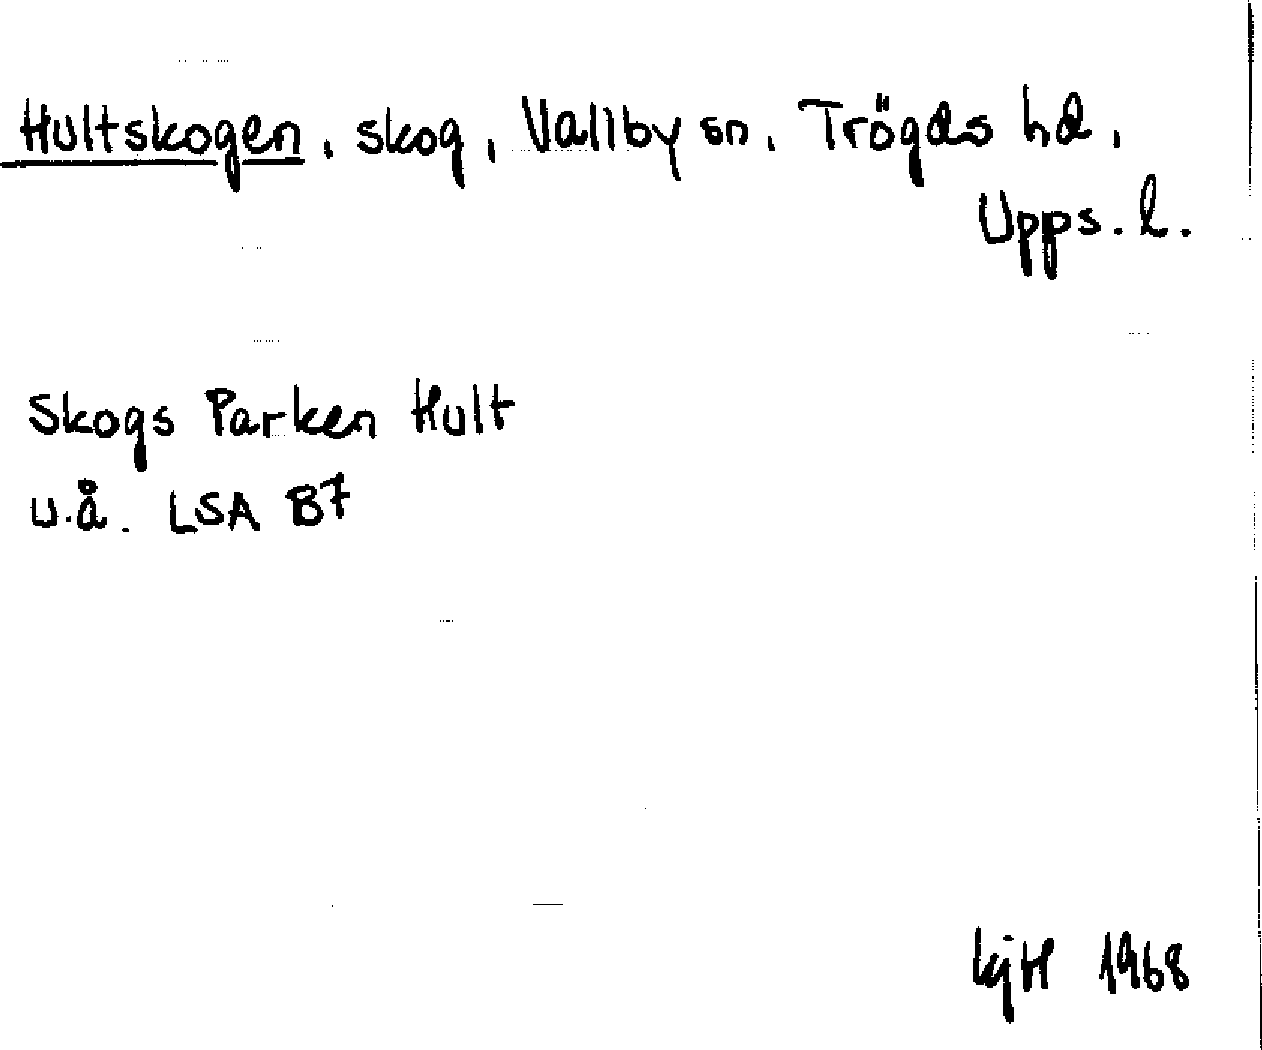 Hultskogen, skog, Vallby sn, Trögds hd,
Upps. l.
Skogs Parken Hult
u.å. LSA B7
kjH 1968